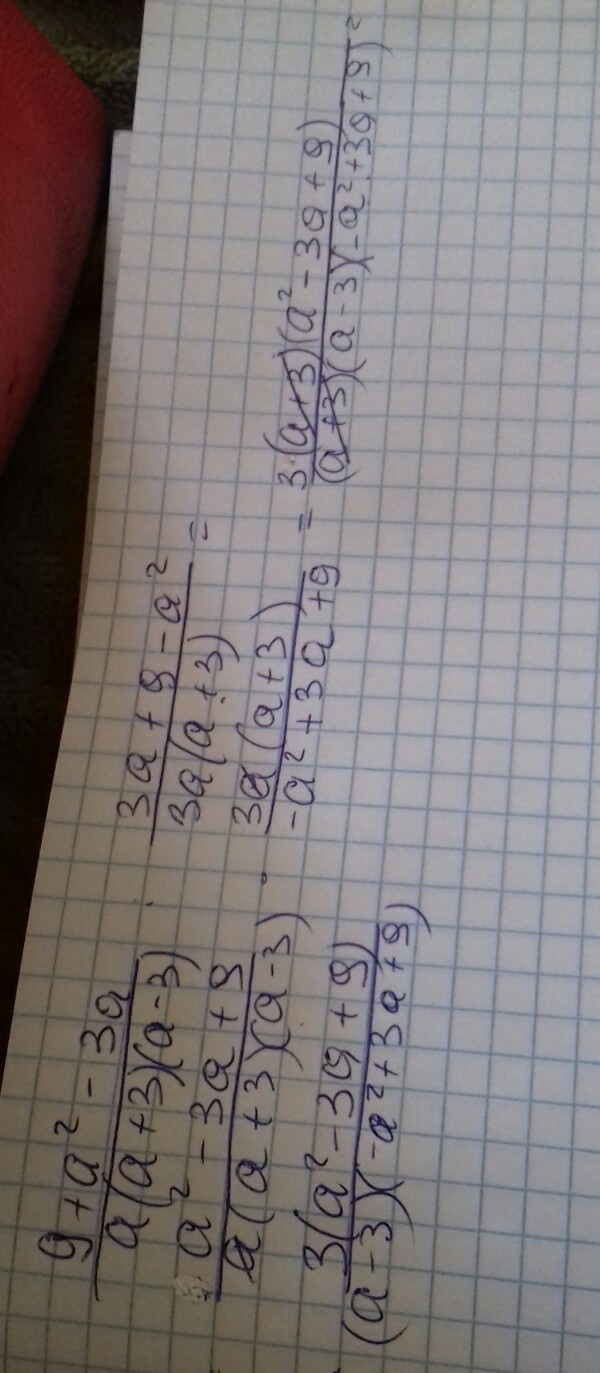 (9 + a² - 3a)/(a(a+3)(a-3)) : (3a + 9 - a²)/(3a(a+3)) =
= (a² - 3a + 9)/(a(a+3)(a-3)) · (3a(a+3))/(-a² + 3a + 9) = (3·(a+3)(a² - 3a + 9))/((a+3)(a-3)(-a² + 3a + 9)) =
= (3(a² - 3a + 9))/((a-3)(-a² + 3a + 9))